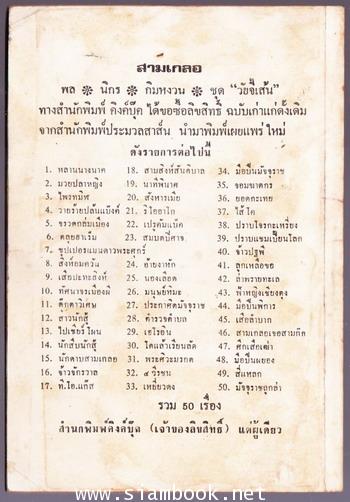 สามเกลอ
พล ❋ นิกร ❋ กิมหงวน ❋ ชุด "วัยจี้เส้น"
ทางสำนักพิมพ์ คิงค์บุ๊ค ได้ขอซื้อลิขสิทธิ์ ฉบับเก่าแก่ดั้งเดิม
จากสำนักพิมพ์ประมวลสาส์น นำมาพิมพ์เผยแพร่ใหม่
ดังรายการต่อไปนี้
1. หลานนางนาค
2. มวยปล้ำหญิง
3. ไพรทมิฬ
4. วายร้ายปล้นแบ๊งค์
5. จรวดถล่มเมือง
6. ตลุยฮาเร็ม
7. ซุปเปอร์แมนดาวพระศุกร์
8. สิงห์อมควัน
9. เสือปะทะสิงห์
10. ทัศนาจรเมืองผี
11. ตุ๊กตาวิเศษ
12. สาวนักสู้
13. ไปเชียร์โผน
14. นักสืบนักสู้
15. นักดาบสามเกลอ
16. จ้าวจักรวาล
17. ที.ไอ.แก๊ส
18. สามสิงห์สันติบาล
19. นาทีพินาศ
20. สังหารเมีย
21. วิโอลาโก
22. เปรูคัมแบ๊ค
23. สมบัติปีศาจ
24. อ้ายงาช้าง
25. น้องเลือด
26. มนุษย์หิมะ
27. ประกาศิตมัจจุราช
28. ตำรวจตำบล
29. เฮโรอีน
30. ไดแอ๊วเรียนลัด
31. พระศิวะมรกต
32. ๔ วีรชน
33. เหยี่ยวดง
34. มือปืนมัจจุราช
35. จอมฆาตกร
36. ยอดกะเทย
37. ไส้ไก่
38. ปราบโจรกะเหรี่ยง
39. ปราบแชมเปี้ยนโลก
40. จ้าวปฐพี
41. ลูกเหลือขอ
42. ล่าทรายทะเล
43. ฟ้าหญิงเชียงตุง
44. มือปืนพิการ
45. เสือลำบาก
46. สามเกลอเจอสามก๊ก
47. ศึกเสือเฒ่า
48. มือปืนผยอง
49. สี่แหลก
50. มัจจุราชถูกล่า
รวม 50 เรื่อง
สำนักพิมพ์คิงค์บุ๊ค (เจ้าของลิขสิทธิ์) แต่ผู้เดียว
www.siambook.net